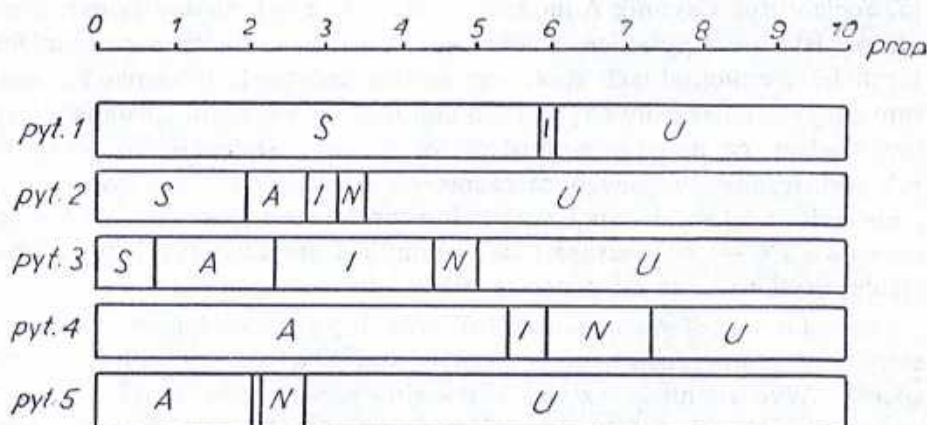 0 1 2 3 4 5 6 7 8 9 10 prop.
pyt.1 S I U
pyt.2 S A I N U
pyt.3 S A I N U
pyt.4 A I N U
pyt.5 A N U